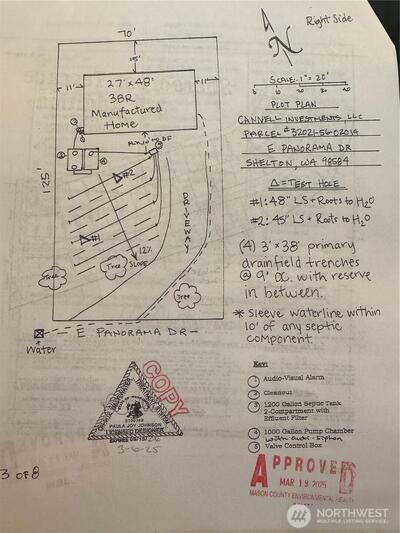 Right Side
70'
15'
11'
11'
27' x 48'
3BR
Manufactured
Home
N
SCALE: 1" = 20'
0 10 20 30 40
PLOT PLAN
CANNELL INVESTMENTS, LLC
PARCEL # 32021-56-02014
E PANORAMA DR
SHELTON, WA 98584
Δ = TEST HOLE
#1: 48" LS + Roots to H2O
#2: 45" LS + Roots to H2O
125'
#2
#1
12%
SLOPE
Tree
Tree
DRIVEWAY
(4) 3' x 38' primary
drainfield trenches
@ 9' OC. with reserve
in between.
* Sleeve waterline within
10' of any septic
component.
E PANORAMA DR
Water
COPY
PAULA JOY JOHNSON
LICENSED DESIGNER
3-6-25
Key:
1 Audio-Visual Alarm
2 Cleanout
3 1200 Gallon Septic Tank
2-Compartment with
Effluent Filter
4 1000 Gallon Pump Chamber
5 Valve Control Box
APPROVED
MAR 19 2025
MASON COUNTY ENVIRONMENTAL HEALTH
3 OF 8
NORTHWEST
MULTIPLE LISTING SERVICE